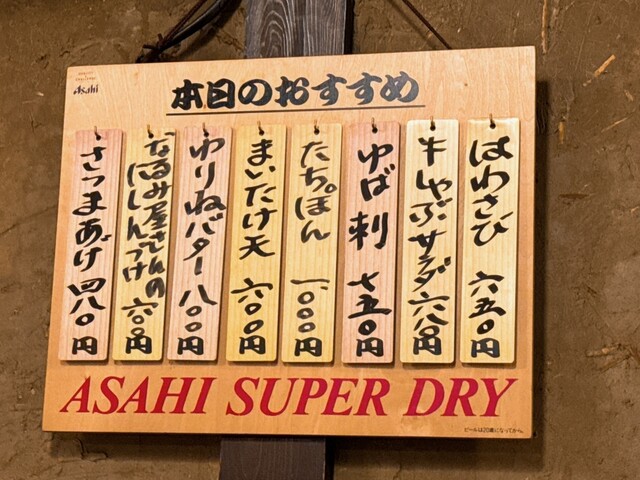 Asahi
本日のおすすめ
はわさび 六五〇円
牛しゃぶサラダ 六八〇円
ゆば刺 七五〇円
たちぽん 一、〇〇〇円
まいたけ天 六〇〇円
ゆりねバター 八〇〇円
なるみ屋さんの
にしんづけ 六〇〇円
さつまあげ 四八〇円
ASAHI SUPER DRY
ビールは20歳になってから。